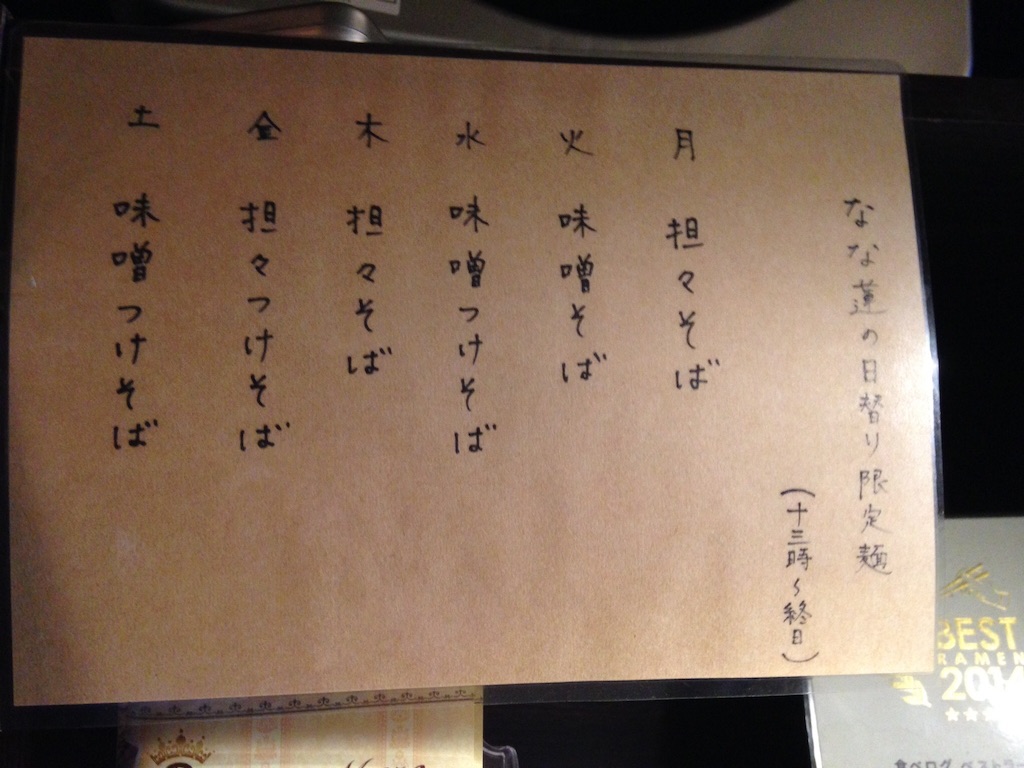 なな蓮の日替り限定麺
(十三時〜終日)
月 担々そば
火 味噌そば
水 味噌つけそば
木 担々そば
金 担々つけそば
土 味噌つけそば
BEST
RAMEN
2014
食べログ ベストラー